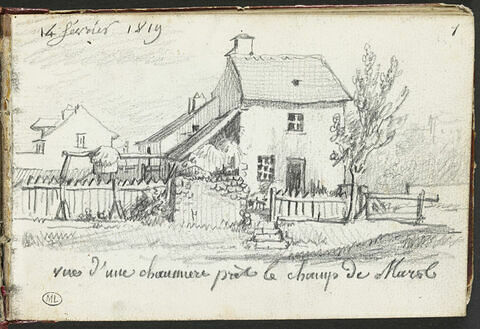 14 février 1819
1
vue d'une chaumiere prêt le champ de Mars
ML